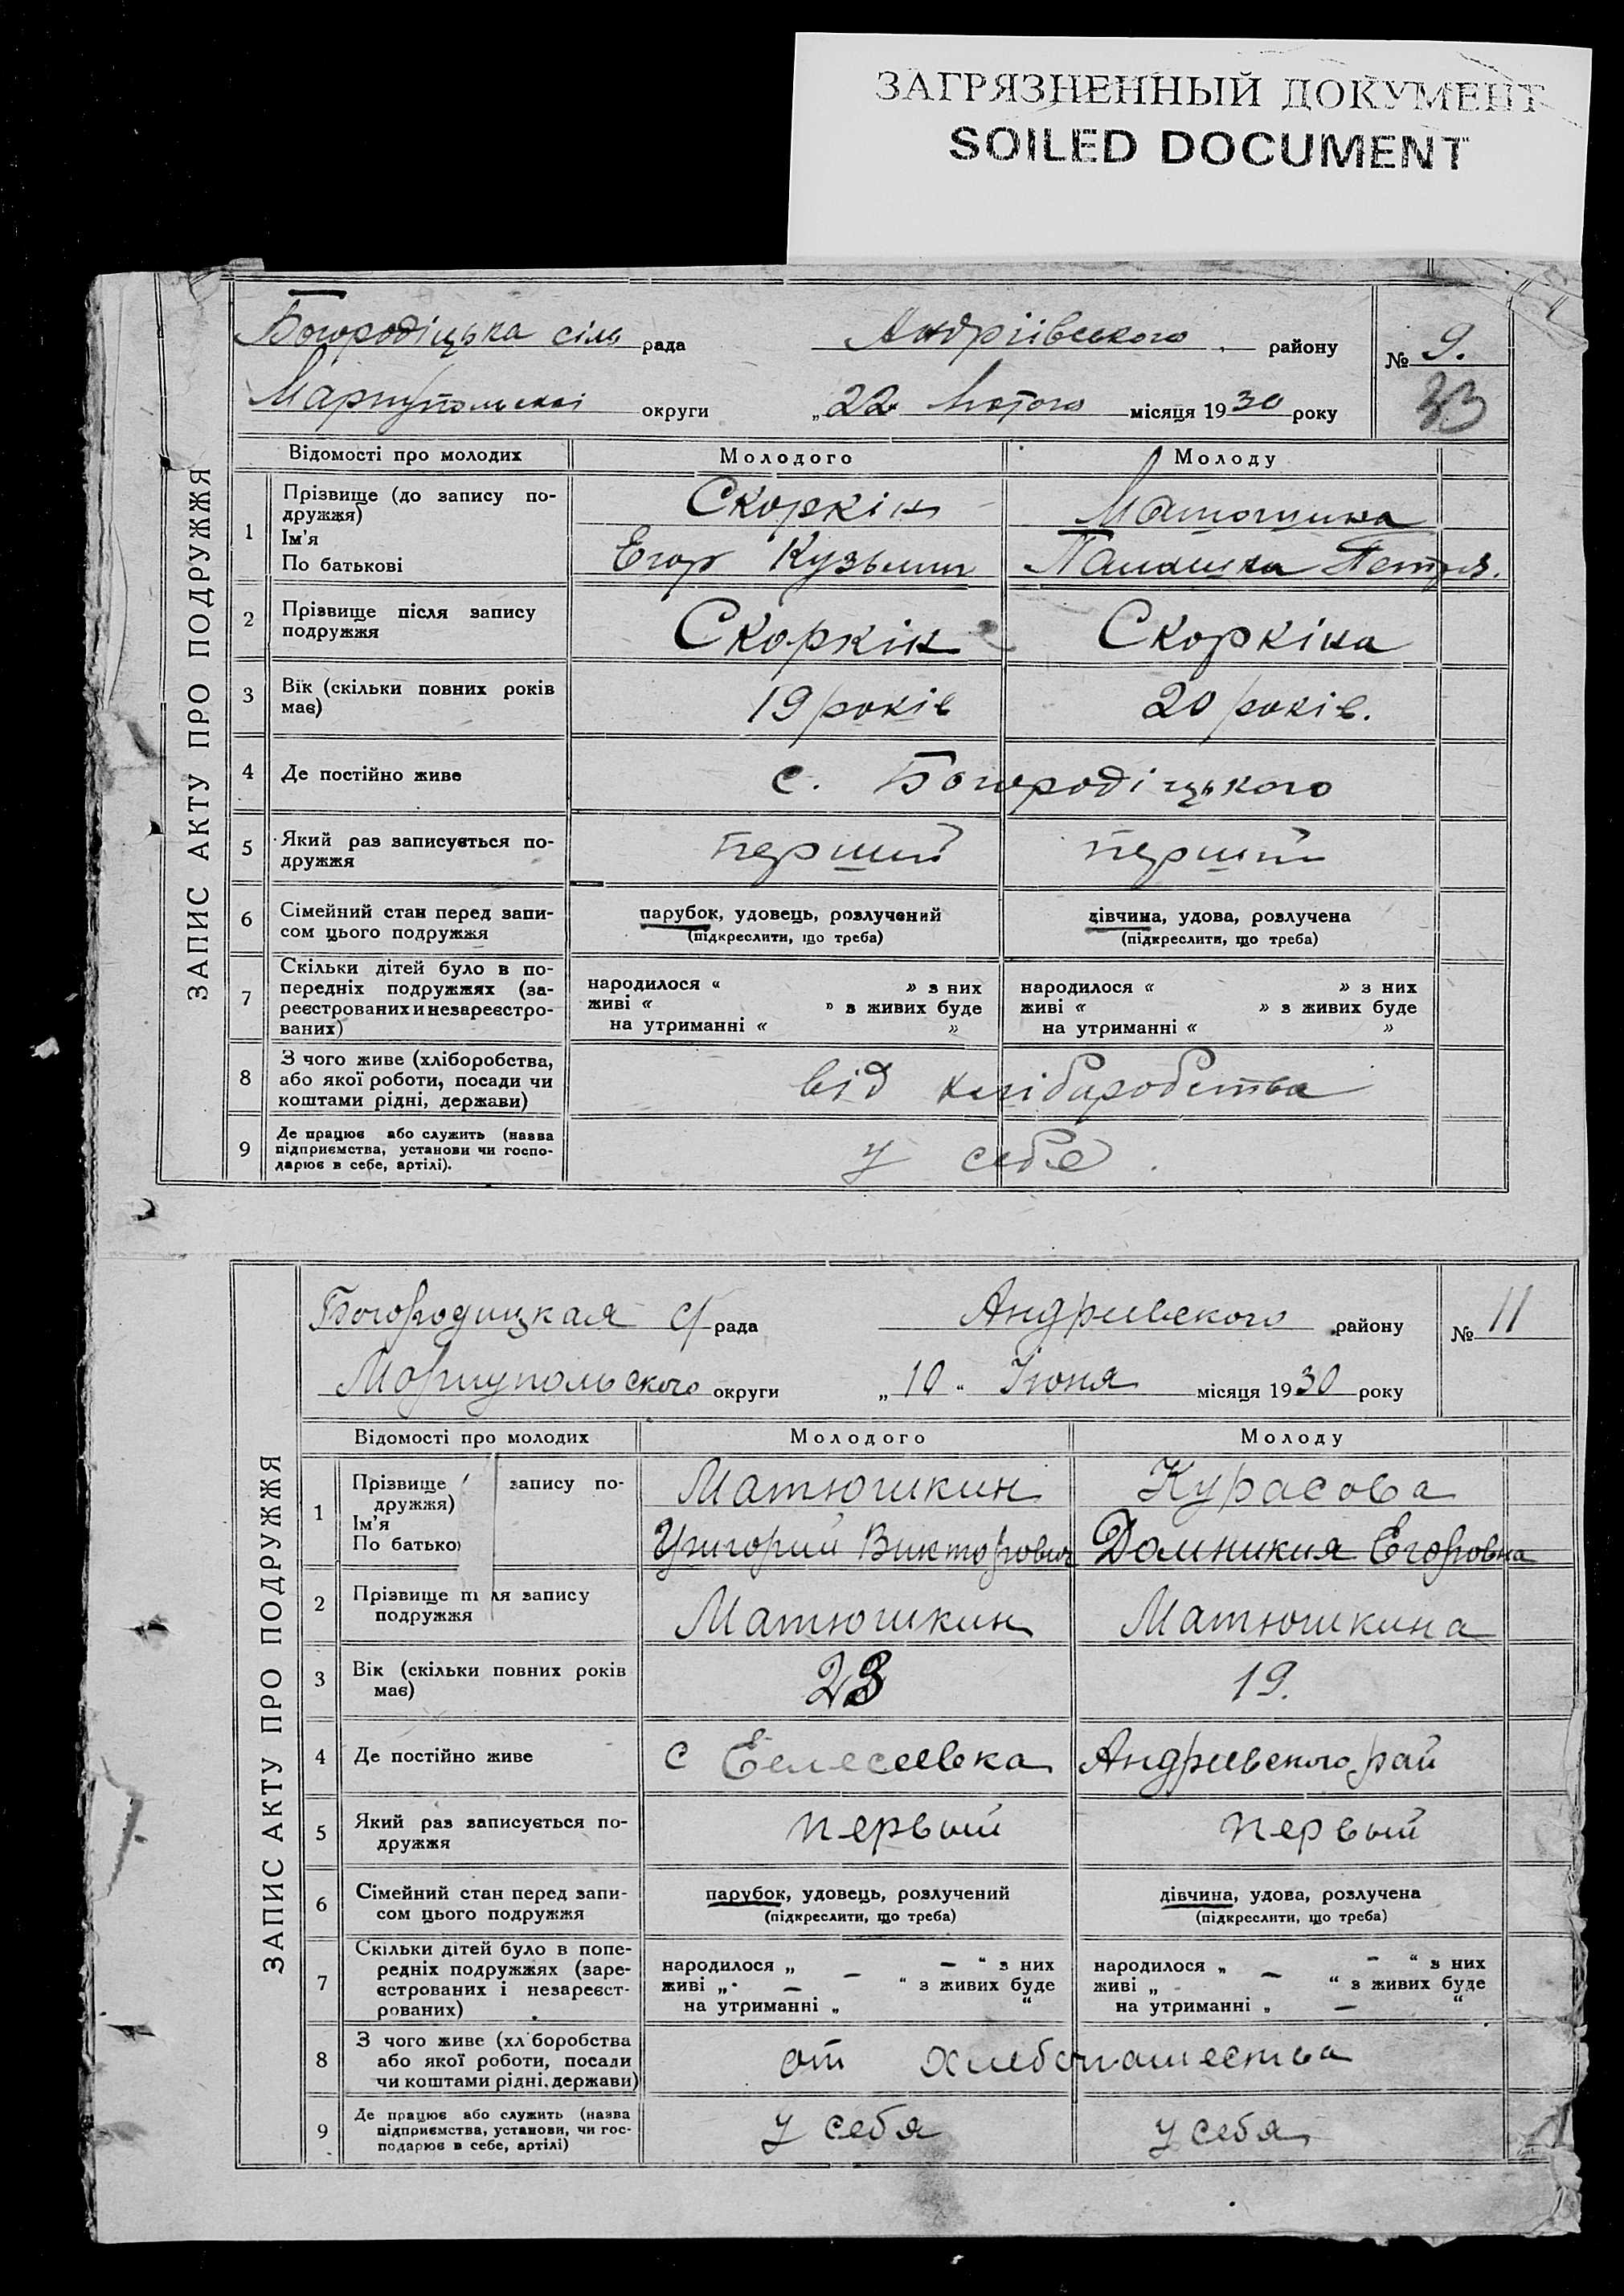 ЗАГРЯЗНЕННЫЙ ДОКУМЕНТ
SOILED DOCUMENT
ЗАПИС АКТУ ПРО ПОДРУЖЖЯ
Богородіцька сіль рада Андріівського району № 9.
Маріупольскоі округи „22 Лютого місяця 1930 року 33
Відомості про молодих Молодого Молоду
1 Прізвище (до запису по-
дружжя) Скоркін
Ім'я
По батькові Егор Кузьмич Петров.
2 Прізвище після запису
подружжя Скоркін Скоркіна
3 Вік (скільки повних років
має) 19 років 20 років.
4 Де постійно живе с. Богородіцького
5 Який раз записується по-
дружжя перший перший
6 Сімейний стан перед запи-
сом цього подружжя парубок, удовець, розлучений дівчина, удова, розлучена
(підкреслити, що треба) (підкреслити, що треба)
7 Скільки дітей було в по-
передніх подружжях (за-
реєстрованих и незареєстро-
ваних)
народилося “ ” з них народилося “ ” з них
живі “ ” з живих буде живі “ ” з живих буде
на утриманні “ ” на утриманні “ ”
8 З чого живе (хліборобства,
або якої роботи, посади чи
коштами рідні, держави) від хліборобства
9 Де працює або служить (назва
підприємства, установи чи госпо-
дарює в себе, артілі). у себе.
ЗАПИС АКТУ ПРО ПОДРУЖЖЯ
Богородицкая с/рада Андриевского району № 11
Мариупольского округи „10“ Іюня місяця 1930 року
Відомості про молодих Молодого Молоду
1 Прізвище ( запису по-
дружжя) Матюшкин Курасова
Ім'я
По батько Григорий Викторович Домникия Егоровна
2 Прізвище пі ля запису
подружжя Матюшкин Матюшкина
3 Вік (скільки повних років
має) 23 19.
4 Де постійно живе с Елесеевка Андриевского рай
5 Який раз записується по-
дружжя первый первый
6 Сімейний стан перед запи-
сом цього подружжя парубок, удовець, розлучений дівчина, удова, розлучена
(підкреслити, що треба) (підкреслити, що треба)
7 Скільки дітей було в попе-
редніх подружжях (заре-
єстрованих і незареєст-
рованих)
народилося „ — — “ з них народилося „ — — “ з них
живі „ — “ з живих буде живі „ “ з живих буде
на утриманні „ “ на утриманні „ — “
8 З чого живе (хл боробства
або якої роботи, посади
чи коштами рідні, держави) от хлебопашества
9 Де працює або служить (назва
підприємства, установи, чи гос-
подарює в себе, артілі) у себя у себя